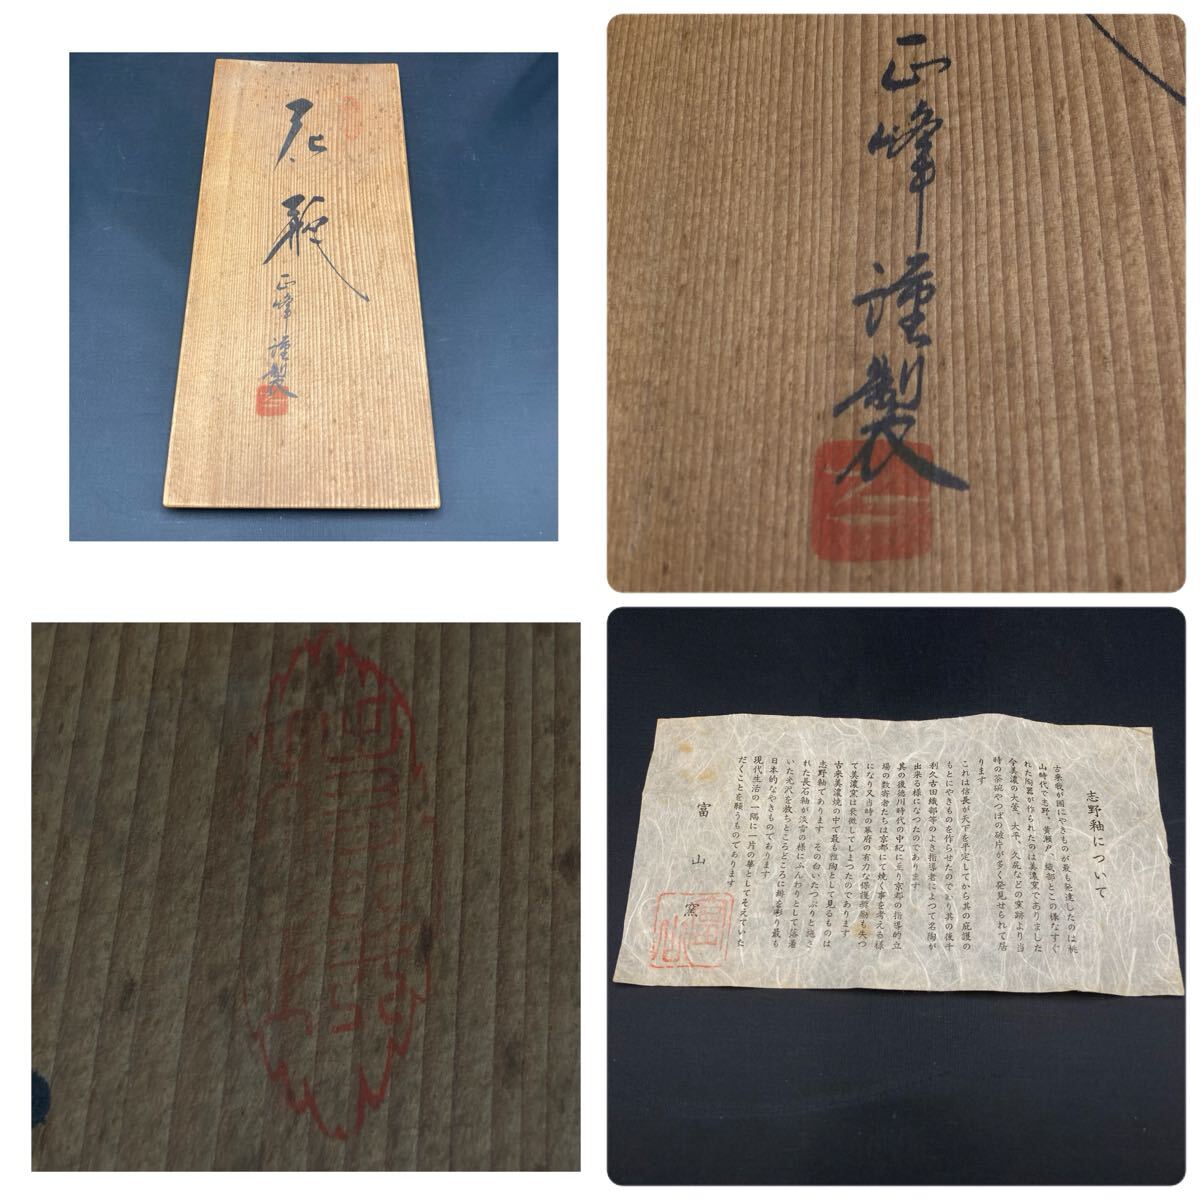 花瓶
正峰謹製
正峰謹製
志野釉について
古来我が国にやきものが最も発達したのは桃
山時代で志野、黄瀬戸、織部とこの様なすぐ
れた陶器が作られたのは美濃窯でありました
今美濃の大萱、大平、久尻などの窯跡より当
時の茶碗やつぼの破片が多く発見せられて居
ります
これは信長が天下を平定してから其の庇護の
もとにやきものを作らせたのであり其の後千
利久古田織部等のよき指導者によつて名陶が
出来る様になつたのであります
其の後徳川時代の中紀に至り京都の指導的立
場の数寄者たちは京都にて焼く事を考える様
になり又当時の幕府の有力な保護奨励も失つ
て美濃窯は衰微してしまつたのであります
古来美濃焼の中で最も雅陶として見るものは
志野釉であります その白いたつぷりと施さ
れた長石釉が淡雪の様にふんわりとして落着
いた光沢を放ちところどころに緋を彩り最も
日本的なやきものであります
現代生活の一隅に一片の華としてそえていた
だくことを願うものであります
富山窯